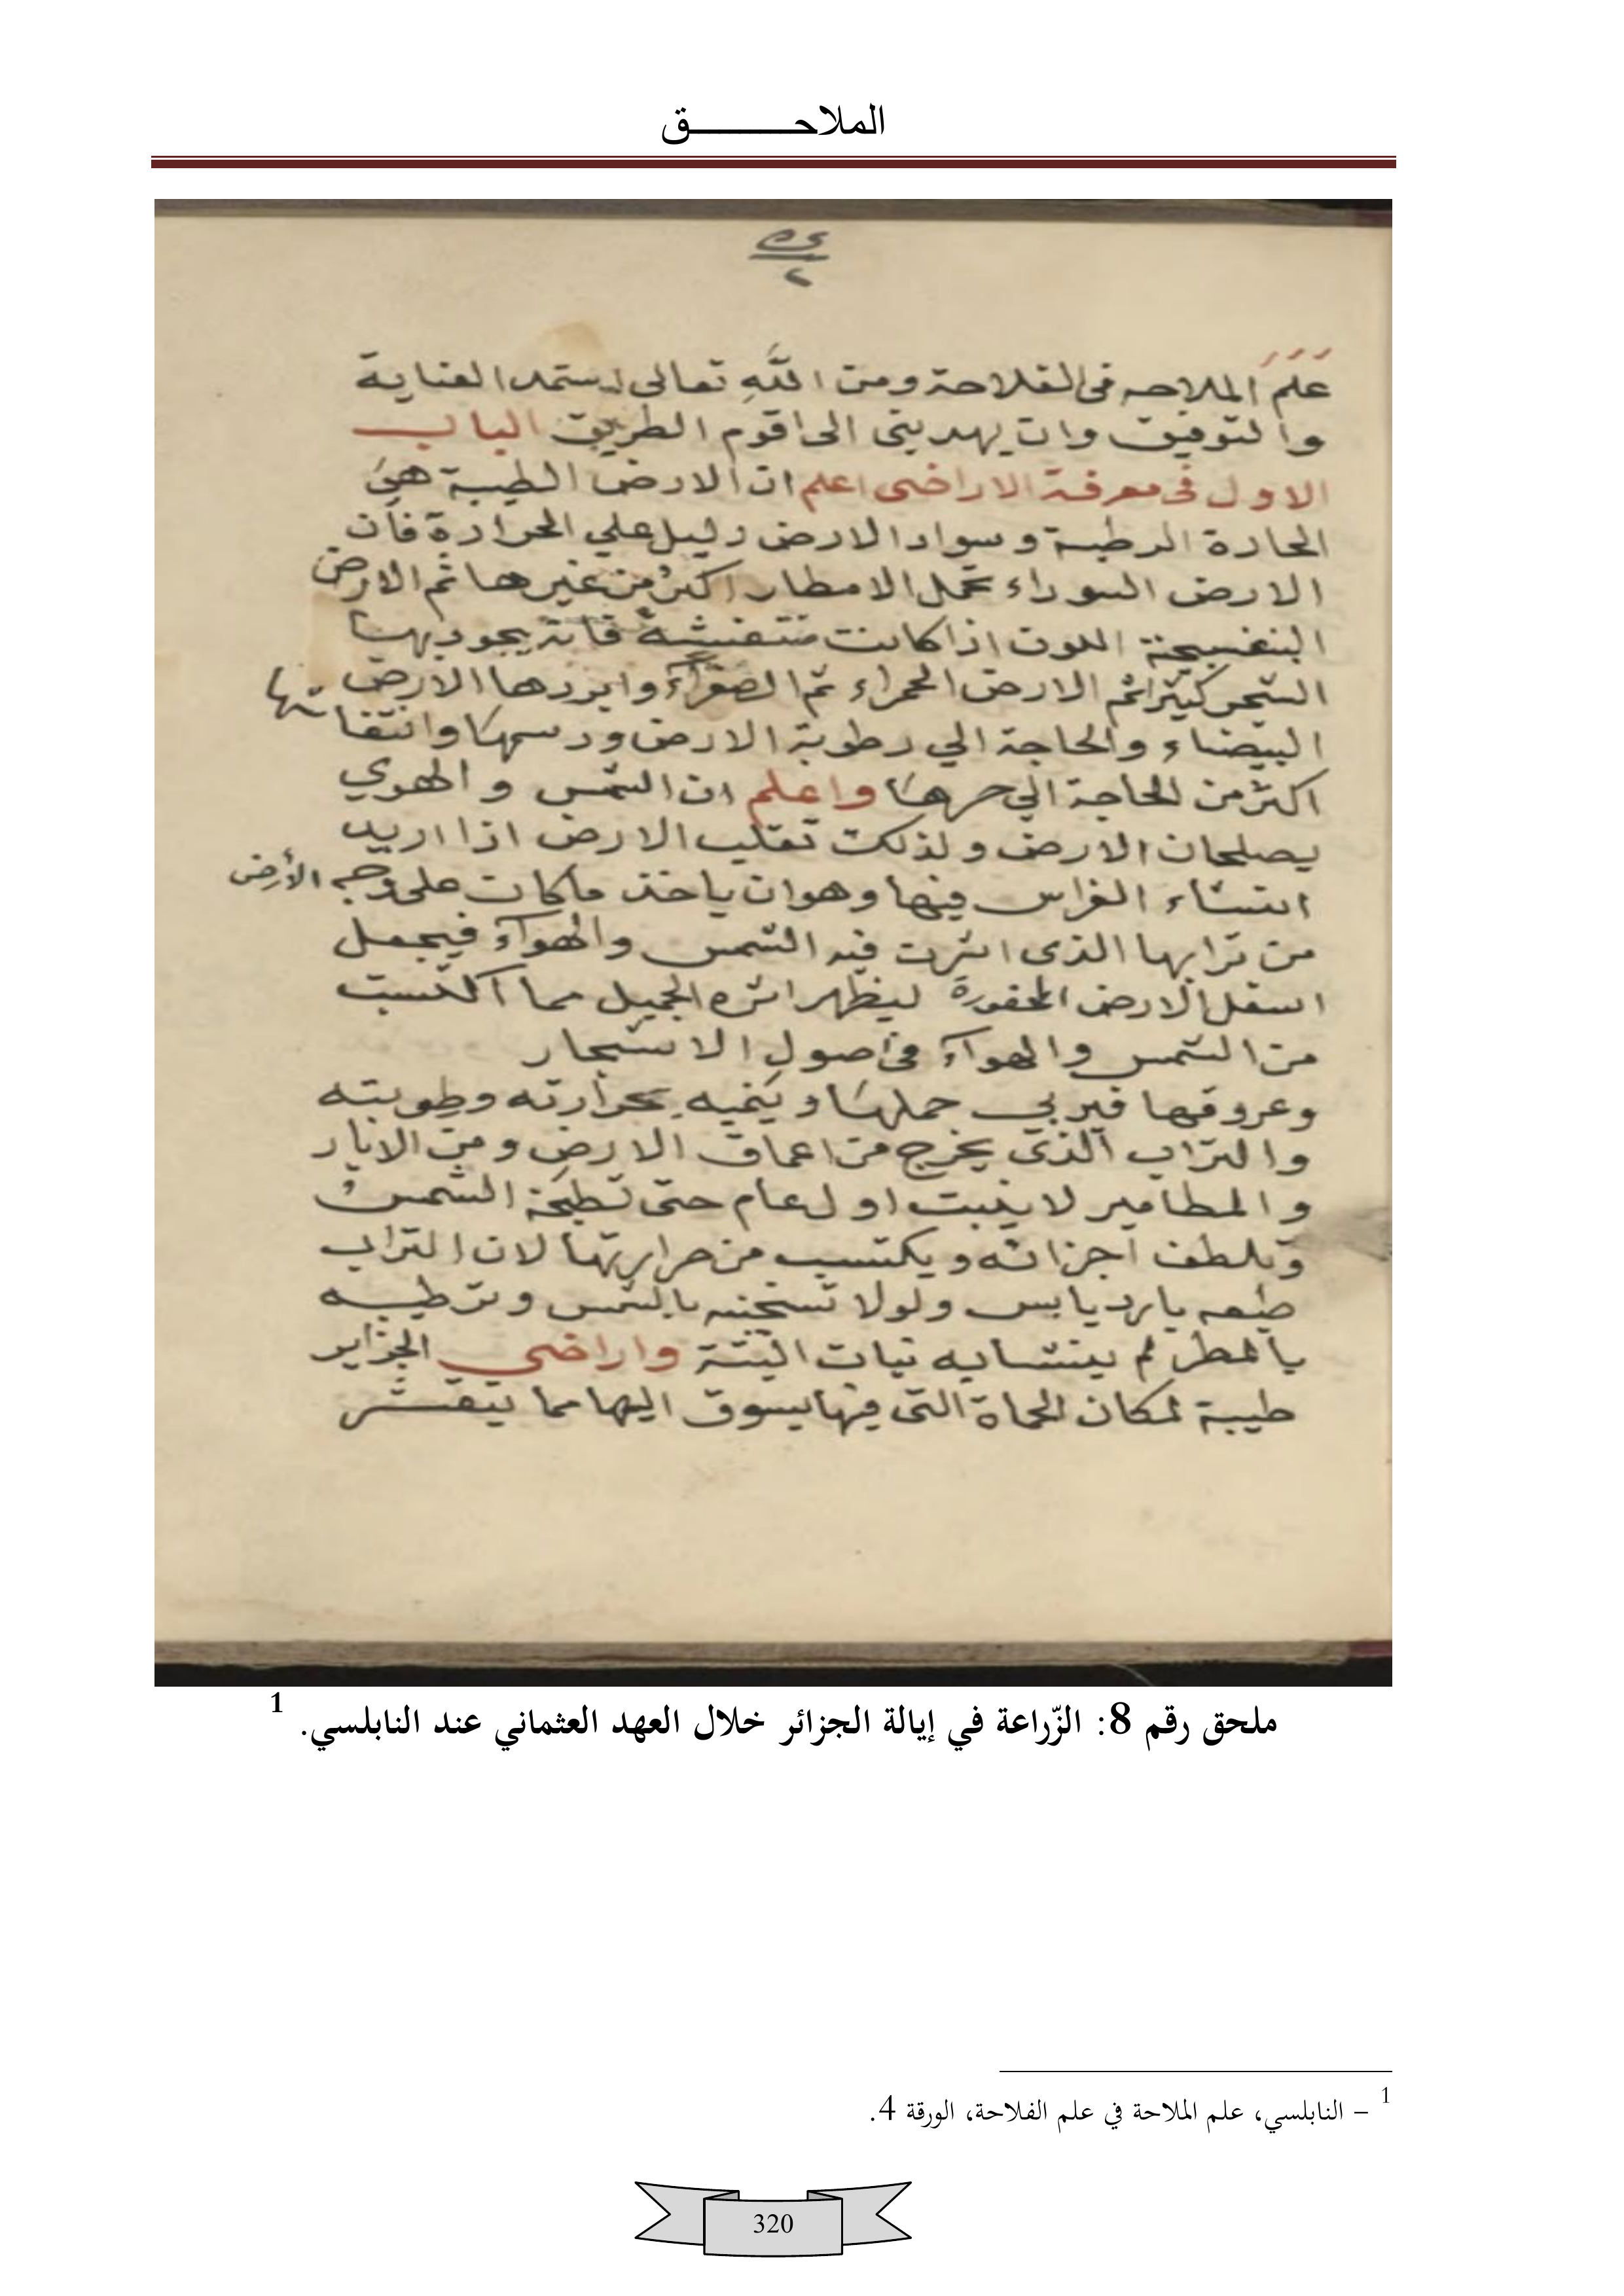 الملاحـــــــــــق
علم الملاحه فى الفلاحة ومن الله تعالى استمد العناية
والتوفيق وان يهدينى الى اقوم الطريق الباب
الاول فى معرفة الاراضى اعلم ان الارض الطيبة هي
الحارة الرطبة وسواد الارض دليل علي الحرارة فان
الارض السوداء تحمل الامطار اكثر من غيرها ثم الارض
البنفسجية اللون اذا كانت منتفشة فانه يجود بها
الشجر كثيرا ثم الارض الحمراء ثم الصفراء وابردها الارض
البيضاء والحاجة الي رطوبة الارض ودسمها وانتفاشها
اكثر من الحاجة الي حرها واعلم ان الشمس والهوي
يصلحان الارض ولذلك تقلب الارض اذا اريد
انشاء الغراس فيها وهو ان ياخذ ما كان على وجه الأرض
من ترابها الذى اثرت فيه الشمس والهوآء فيجعل
اسفل الارض المحفورة ليظهر اثره الجميل مما اكتسبت
من الشمس والهوآء فى اصول الاشجار
وعروقها فيربي حملها وينميه بحرارته وطوبته
والتراب الذى يخرج من اعماق الارض ومن الابار
والمطامير لا ينبت اول عام حتى تطبخه الشمس
وتلطف اجزائه ويكتسب من حرارتها لان التراب
طبعه بارد يابس ولولا تسخينه بالشمس وترطيبه
بالمطر لم ينشا به نبات البتة واراضي الجزاير
طيبة لمكان الحماة التى فيها يسوق اليها مما يتقشر
ملحق رقم 8: الزّراعة في إيالة الجزائر خلال العهد العثماني عند النابلسي. 1
1 – النابلسي، علم الملاحة في علم الفلاحة، الورقة 4.
320